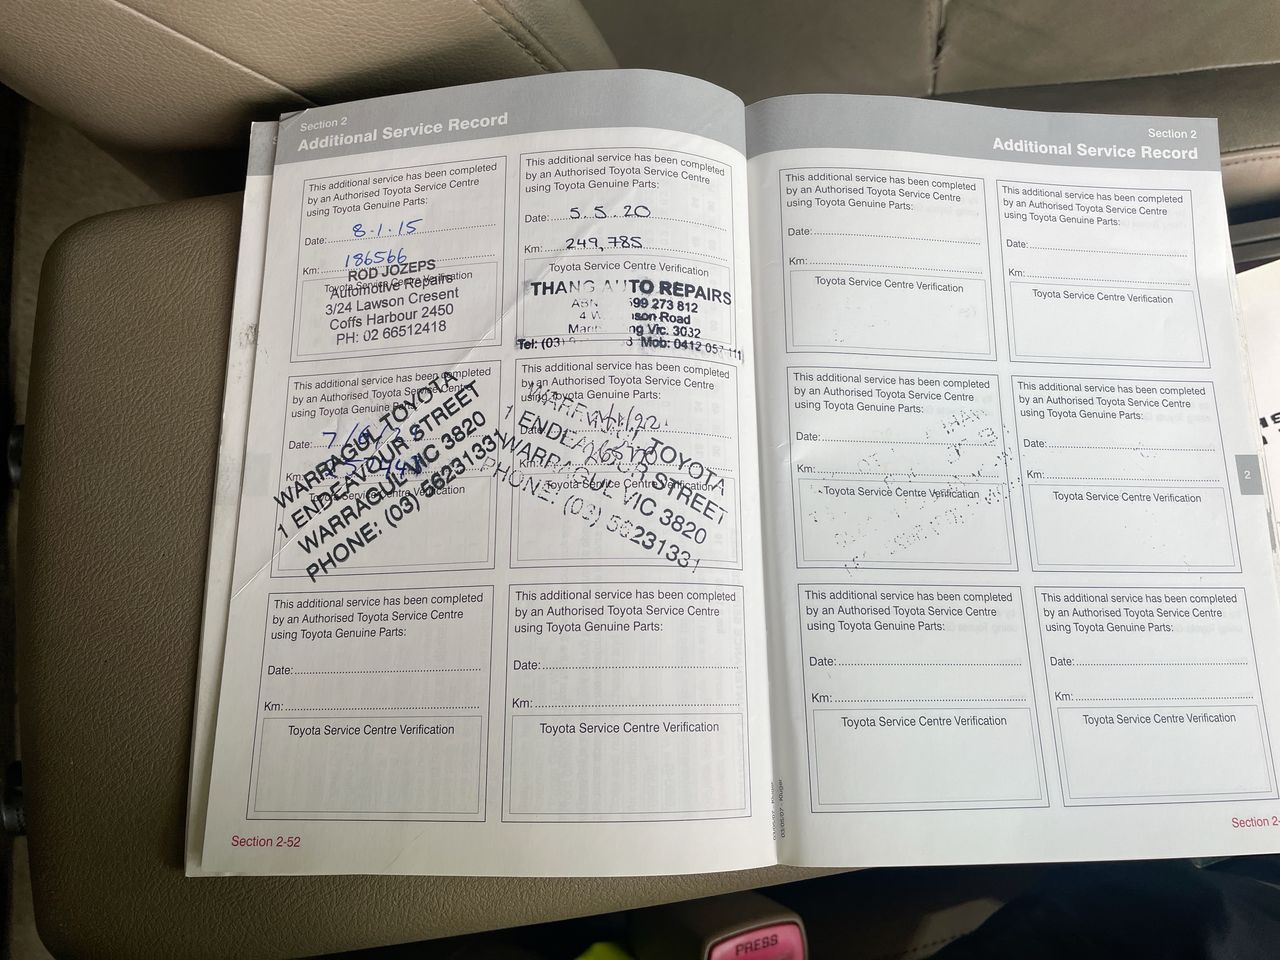 Section 2
Additional Service Record
This additional service has been completed
by an Authorised Toyota Service Centre
using Toyota Genuine Parts:
Date: 8.1.15
Km: 186566
Toyota Service Centre Verification
ROD JOZEPS
Automotive Repairs
3/24 Lawson Cresent
Coffs Harbour 2450
PH: 02 66512418
This additional service has been completed
by an Authorised Toyota Service Centre
using Toyota Genuine Parts:
Date: 5.5.20
Km: 249,785
Toyota Service Centre Verification
THANG AUTO REPAIRS
ABN 599 273 812
4 son Road
ng Vic. 3032
Tel: (03) Mob: 0412 057 111
This additional service has been completed
by an Authorised Toyota Service Centre
using Toyota Genuine Parts:
Date:
Km:
Toyota Service Centre Verification
WARRAGUL TOYOTA
1 ENDEAVOUR STREET
WARRAGUL VIC 3820
PHONE: (03) 56231331
This additional service has been completed
by an Authorised Toyota Service Centre
using Toyota Genuine Parts:
Date:
Km:
Toyota Service Centre Verification
WARRAGUL TOYOTA
1 ENDEAVOUR STREET
WARRAGUL VIC 3820
PHONE: (03) 56231331
This additional service has been completed
by an Authorised Toyota Service Centre
using Toyota Genuine Parts:
Date:
Km:
Toyota Service Centre Verification
This additional service has been completed
by an Authorised Toyota Service Centre
using Toyota Genuine Parts:
Date:
Km:
Toyota Service Centre Verification
Section 2-52
Section 2
Additional Service Record
This additional service has been completed
by an Authorised Toyota Service Centre
using Toyota Genuine Parts:
Date:
Km:
Toyota Service Centre Verification
This additional service has been completed
by an Authorised Toyota Service Centre
using Toyota Genuine Parts:
Date:
Km:
Toyota Service Centre Verification
This additional service has been completed
by an Authorised Toyota Service Centre
using Toyota Genuine Parts:
Date:
Km:
Toyota Service Centre Verification
This additional service has been completed
by an Authorised Toyota Service Centre
using Toyota Genuine Parts:
Date:
Km:
Toyota Service Centre Verification
2
This additional service has been completed
by an Authorised Toyota Service Centre
using Toyota Genuine Parts:
Date:
Km:
Toyota Service Centre Verification
This additional service has been completed
by an Authorised Toyota Service Centre
using Toyota Genuine Parts:
Date:
Km:
Toyota Service Centre Verification
Section 2-
03/05/07 - Kluger
PRESS